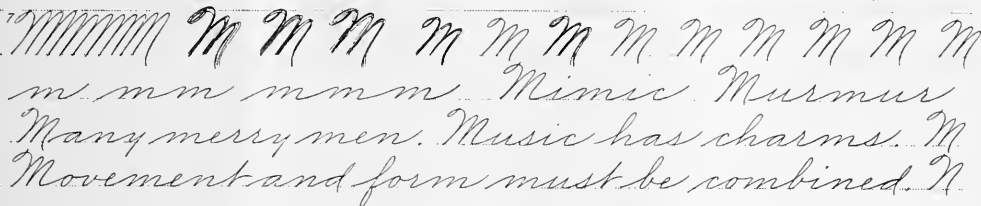 7 MMMMMM M M M M M M M M M M M M
m mm mmm Mimic Murmur
Many merry men. Music has charms. M
Movement and form must be combined. N